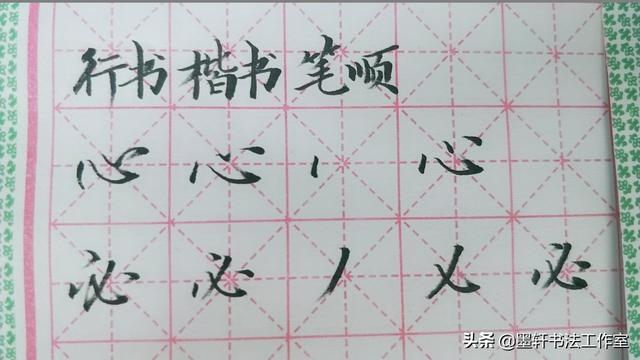 行书 楷书 笔顺
心 心 丶 心
必 必 丿 乂 必
头条 @墨轩书法工作室